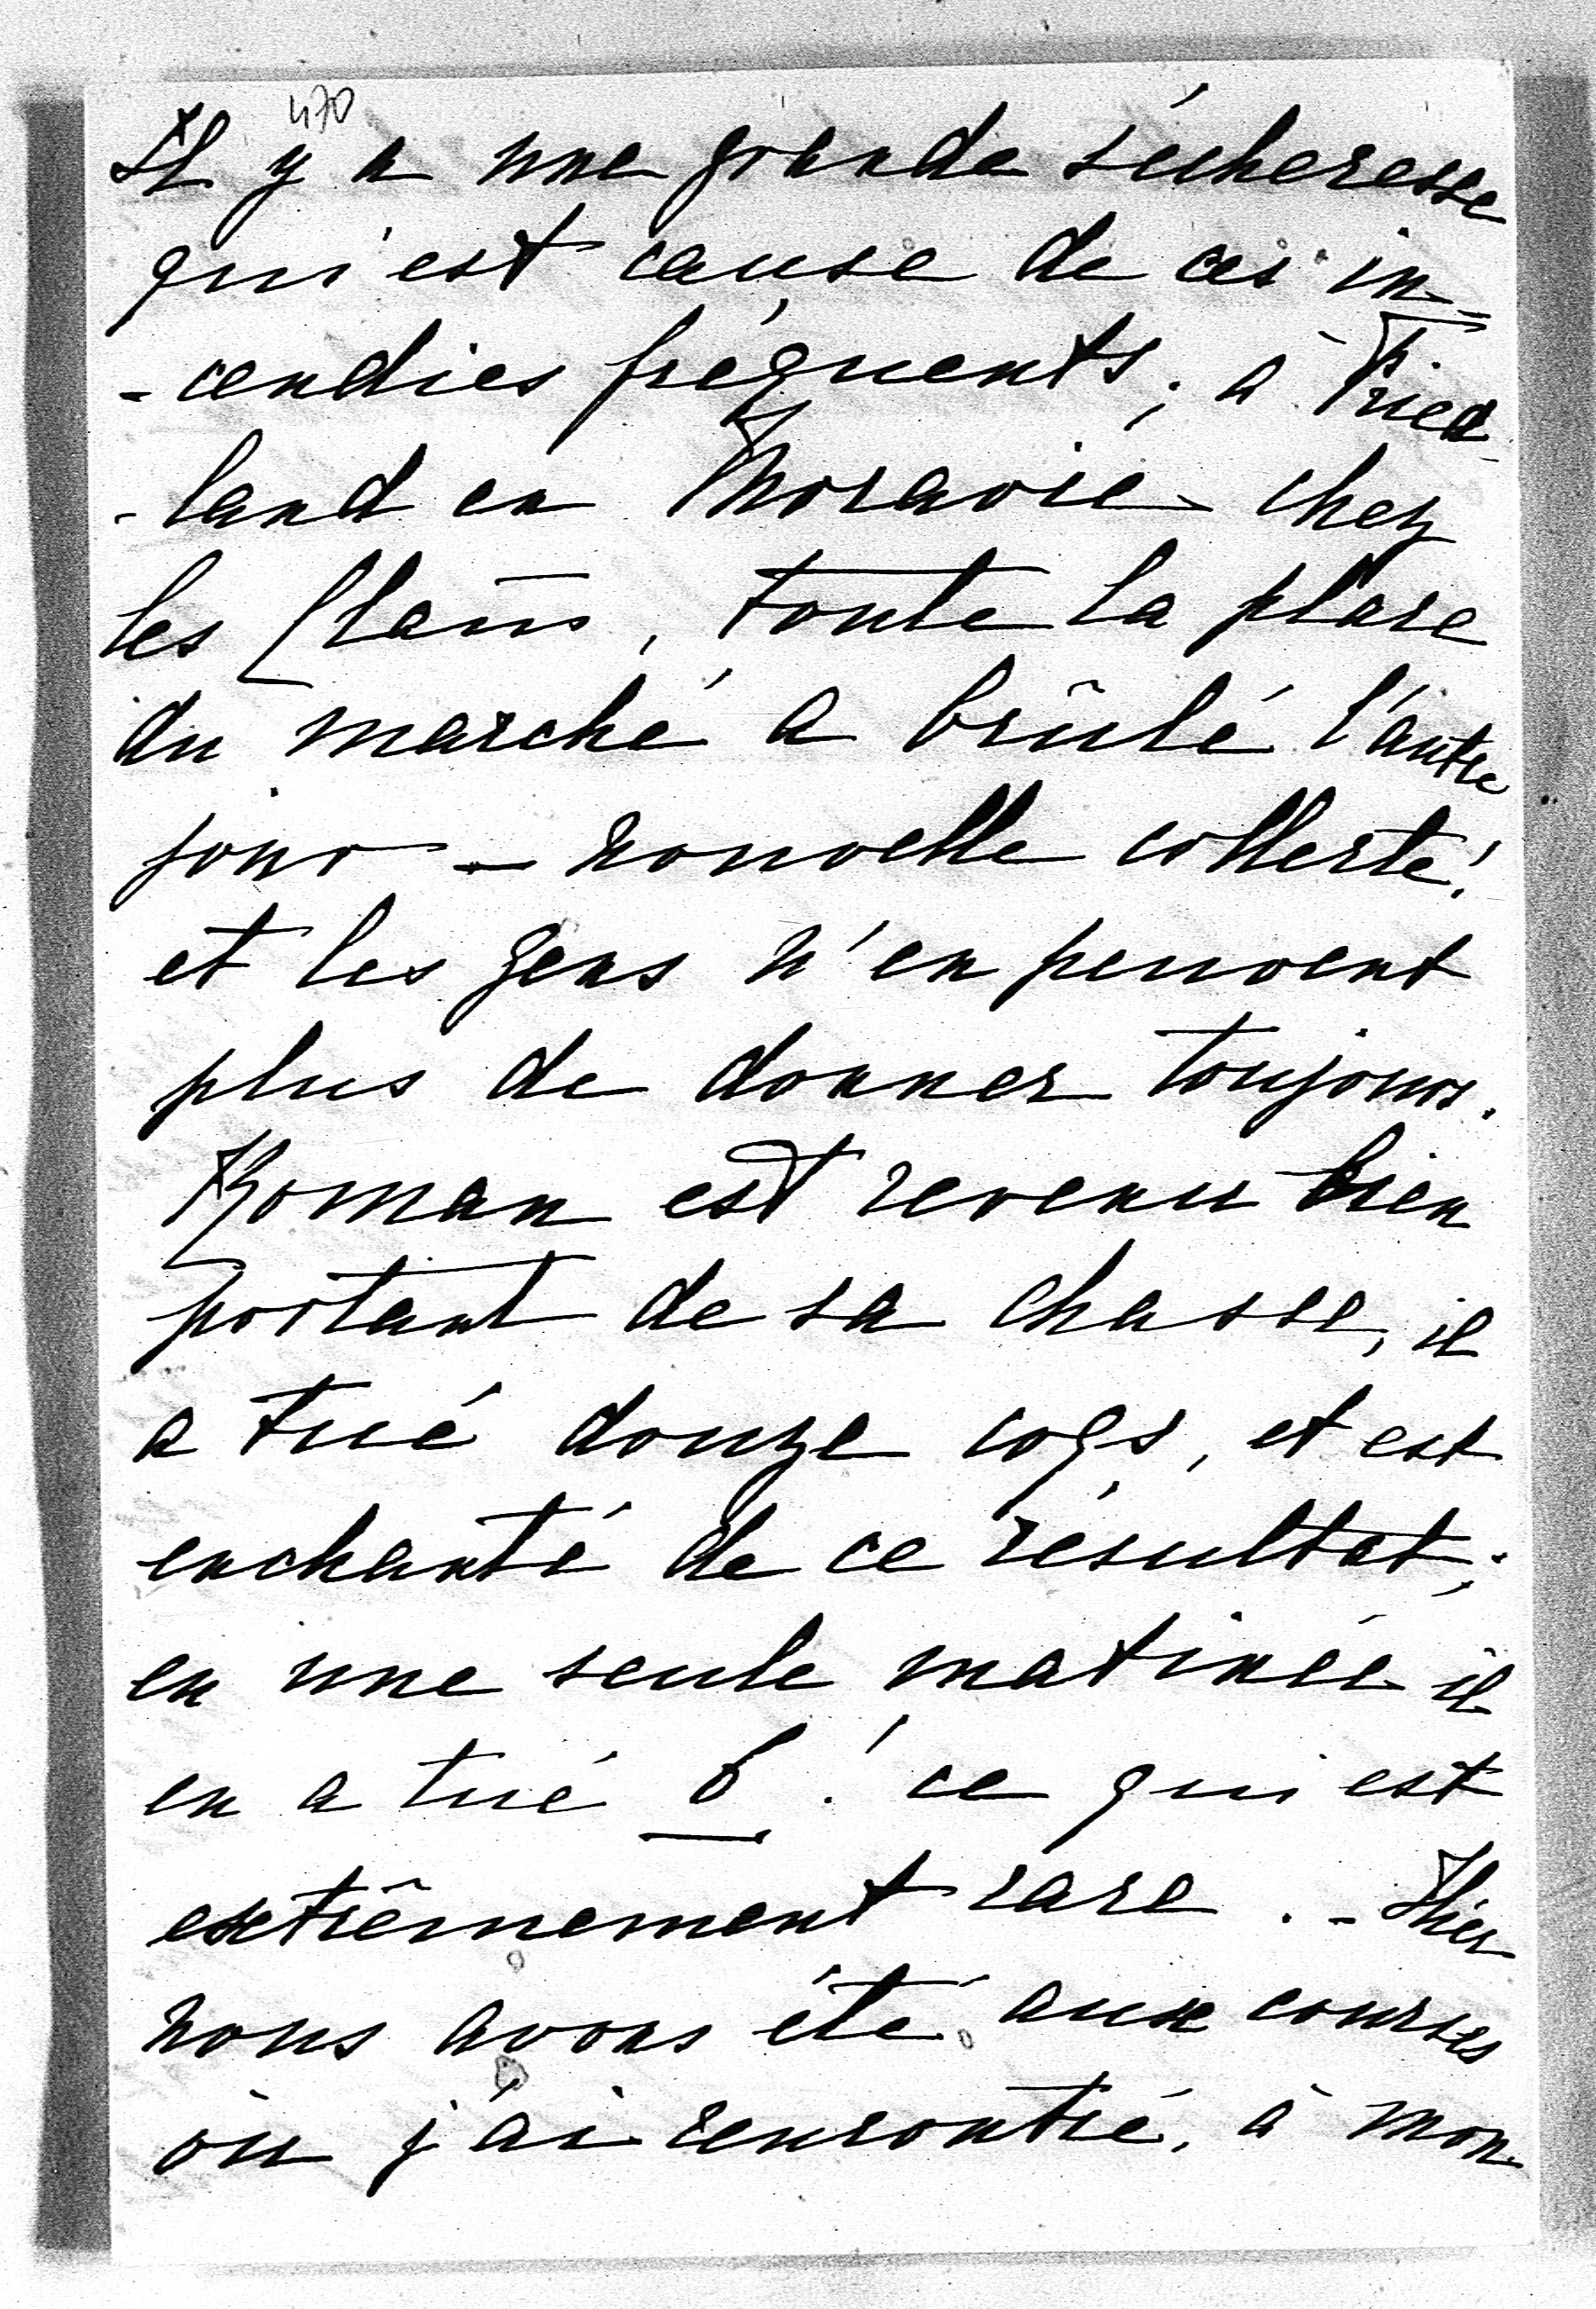 470
Il y a une grande sécheresse
qui est cause de ces in-
-cendies fréquents; à Fried-
-land en Moravie chez
les Clam, toute la place
du marché a brûlé l'autre
jour — nouvelle collecte!
et les gens n'en peuvent
plus de donner toujours.
Roman est revenu bien
portant de sa chasse, il
a tué douze coqs, et est
enchanté de ce résultat;
en une seule matinée il
en a tué 6! ce qui est
extrêmement rare. - Hier
nous avons été aux courses
où j'ai rencontré, à mon